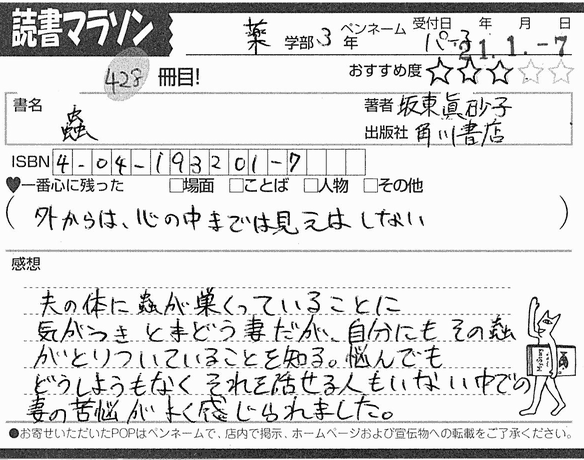 読書マラソン
薬 学部 3 年 ペンネーム パーチ
受付日 年 月 日
21.1.-7
428 冊目!
おすすめ度 ☆☆☆☆☆
書名 蟲
著者 坂東眞砂子
出版社 角川書店
ISBN 4-04-193201-7
♥一番心に残った □場面 □ことば □人物 □その他
(外からは、心の中までは見えはしない)
感想
夫の体に蟲が巣くっていることに
気がつきとまどう妻だが、自分にもその蟲
がとりついていることを知る。悩んでも
どうしようもなくそれを話せる人もいない中での
妻の苦悩がよく感じられました。
●お寄せいただいたPOPはペンネームで、店内で掲示、ホームページおよび宣伝物への転載をご了承ください。